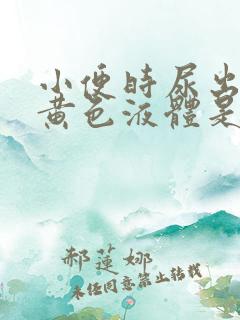 小便時尿出
黄色液體是
郝蓮娜
未经同意禁止转载